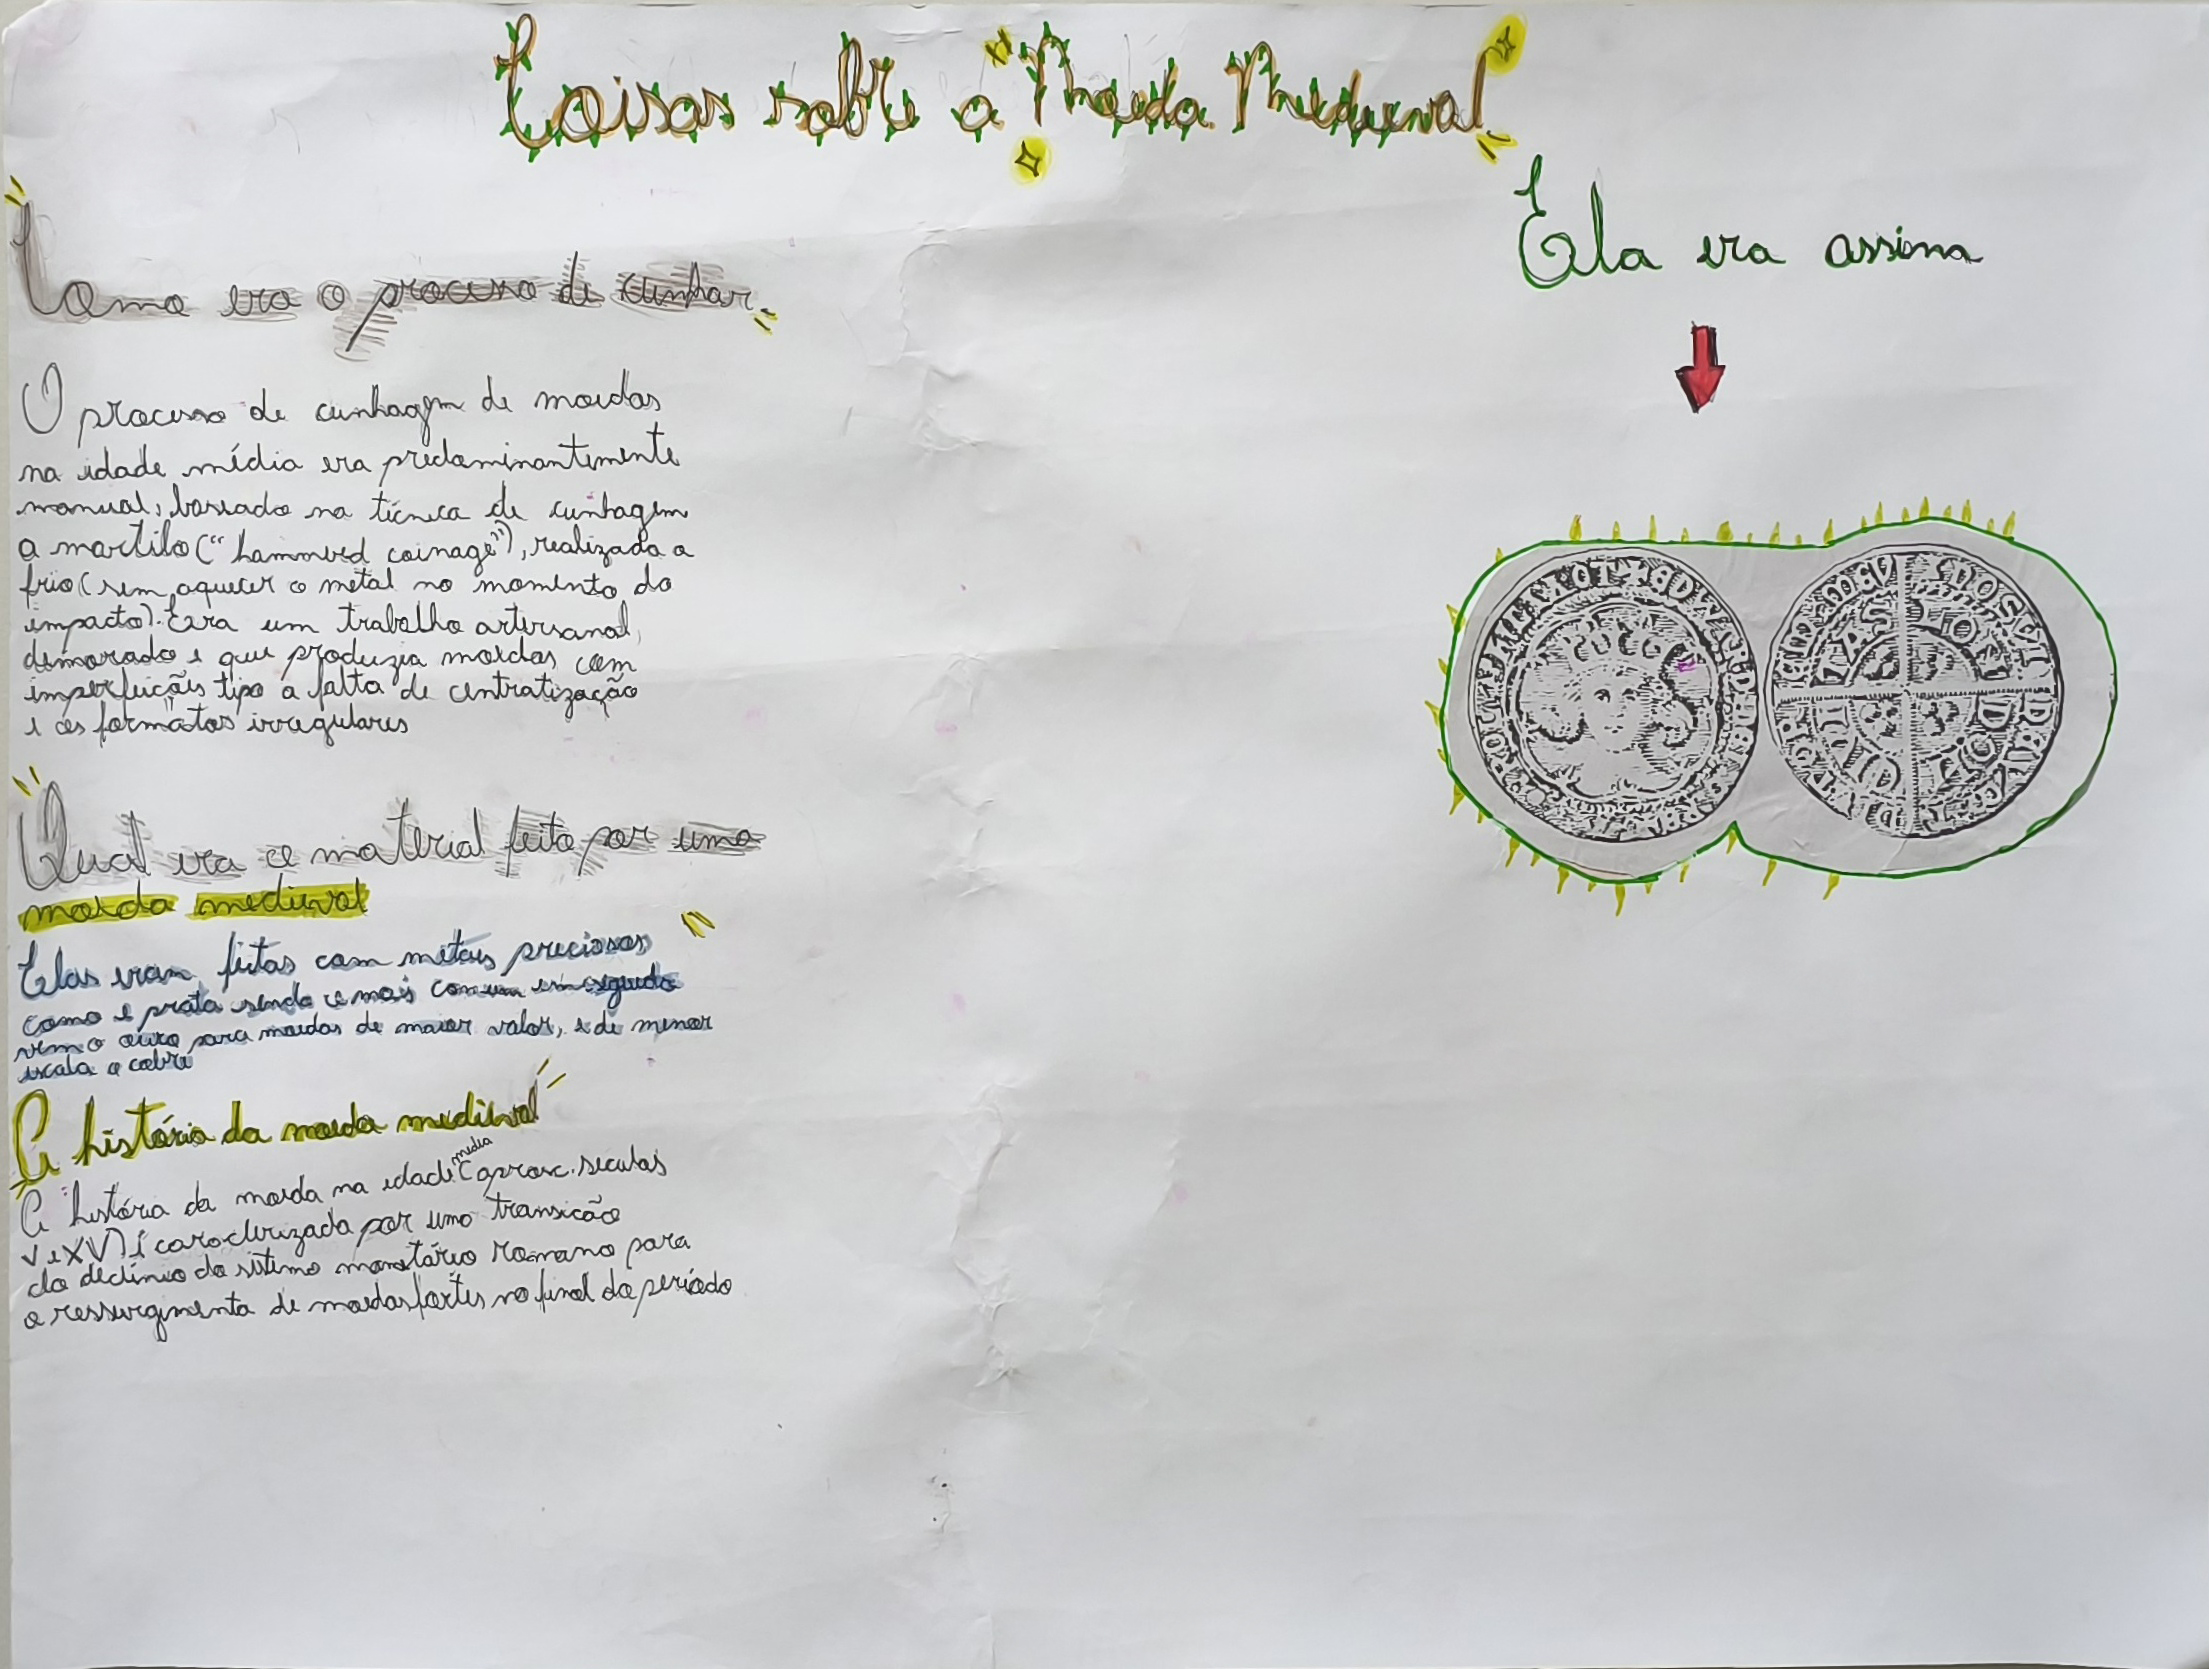 Coisas sobre a "Moeda Medieval"
Como era o processo de cunhar
O processo de cunhagem de moedas
na idade média era predominantemente
manual, baseado na técnica de cunhagem
a martilo ("hammered coinage"), realizada a
frio (sem aquecer o metal no momento do
impacto). Era um trabalho artersanal,
demorado e que produzia moedas com
imperfeições tipo a falta de centratização
e os formatos irregulares
Qual era o material feito por uma
moeda medieval
Elas eram feitas com metais preciosos
como e prata sendo o mais comum em seguida
vem o ouro para moedas de maior valor, e de menor
escala o cobre
A história da moeda medieval
A história da moeda na idade média (aprox. seculos
V e XV) é caracterizada por uma transicão
do declínio do sistemo monetário romano para
o ressurgimento de moedas fortes no final do período
Ela era assima